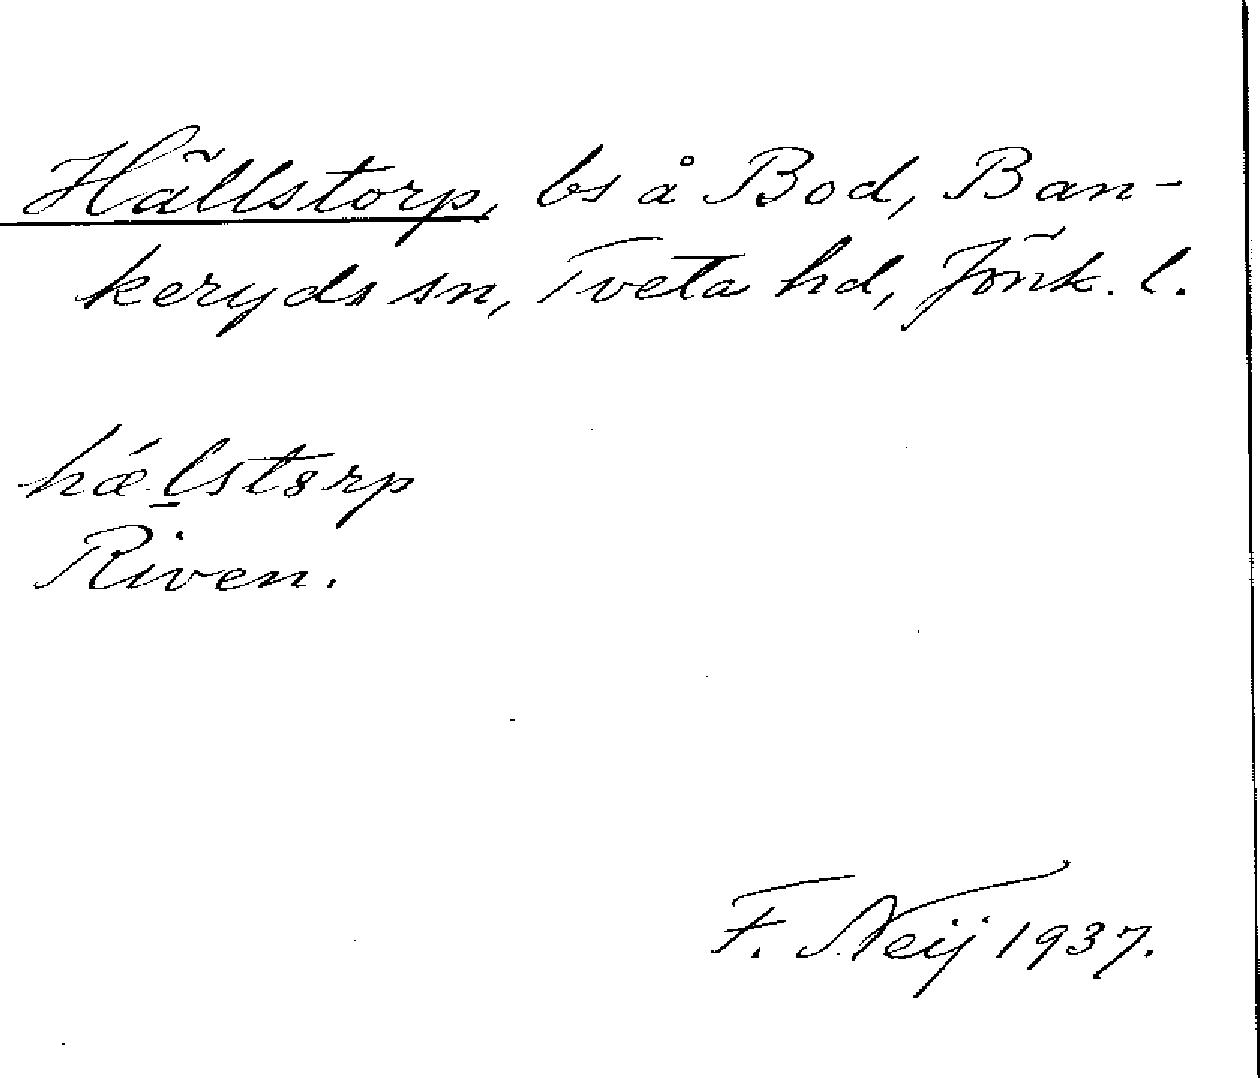 Hällstorp, bs å Bod, Ban-
keryds sn, Tveta hd, Jönk. l.
hǽl̲stȣrp
Riven.
F. Neij 1937.